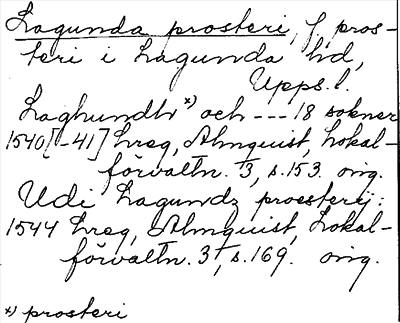 Lagunda prosteri, f, pros-
teri i Lagunda hd,
Upps.l.
Laghundtr x) och --- 18 sokner
1540[-41] hreg, Almquist, Lokal-
förvaltn. 3, s.153. orig.
Udi Lagundz proesterij:
1544 hreg, Almquist, Lokal-
förvaltn. 3, s.169. orig.
x) prosteri